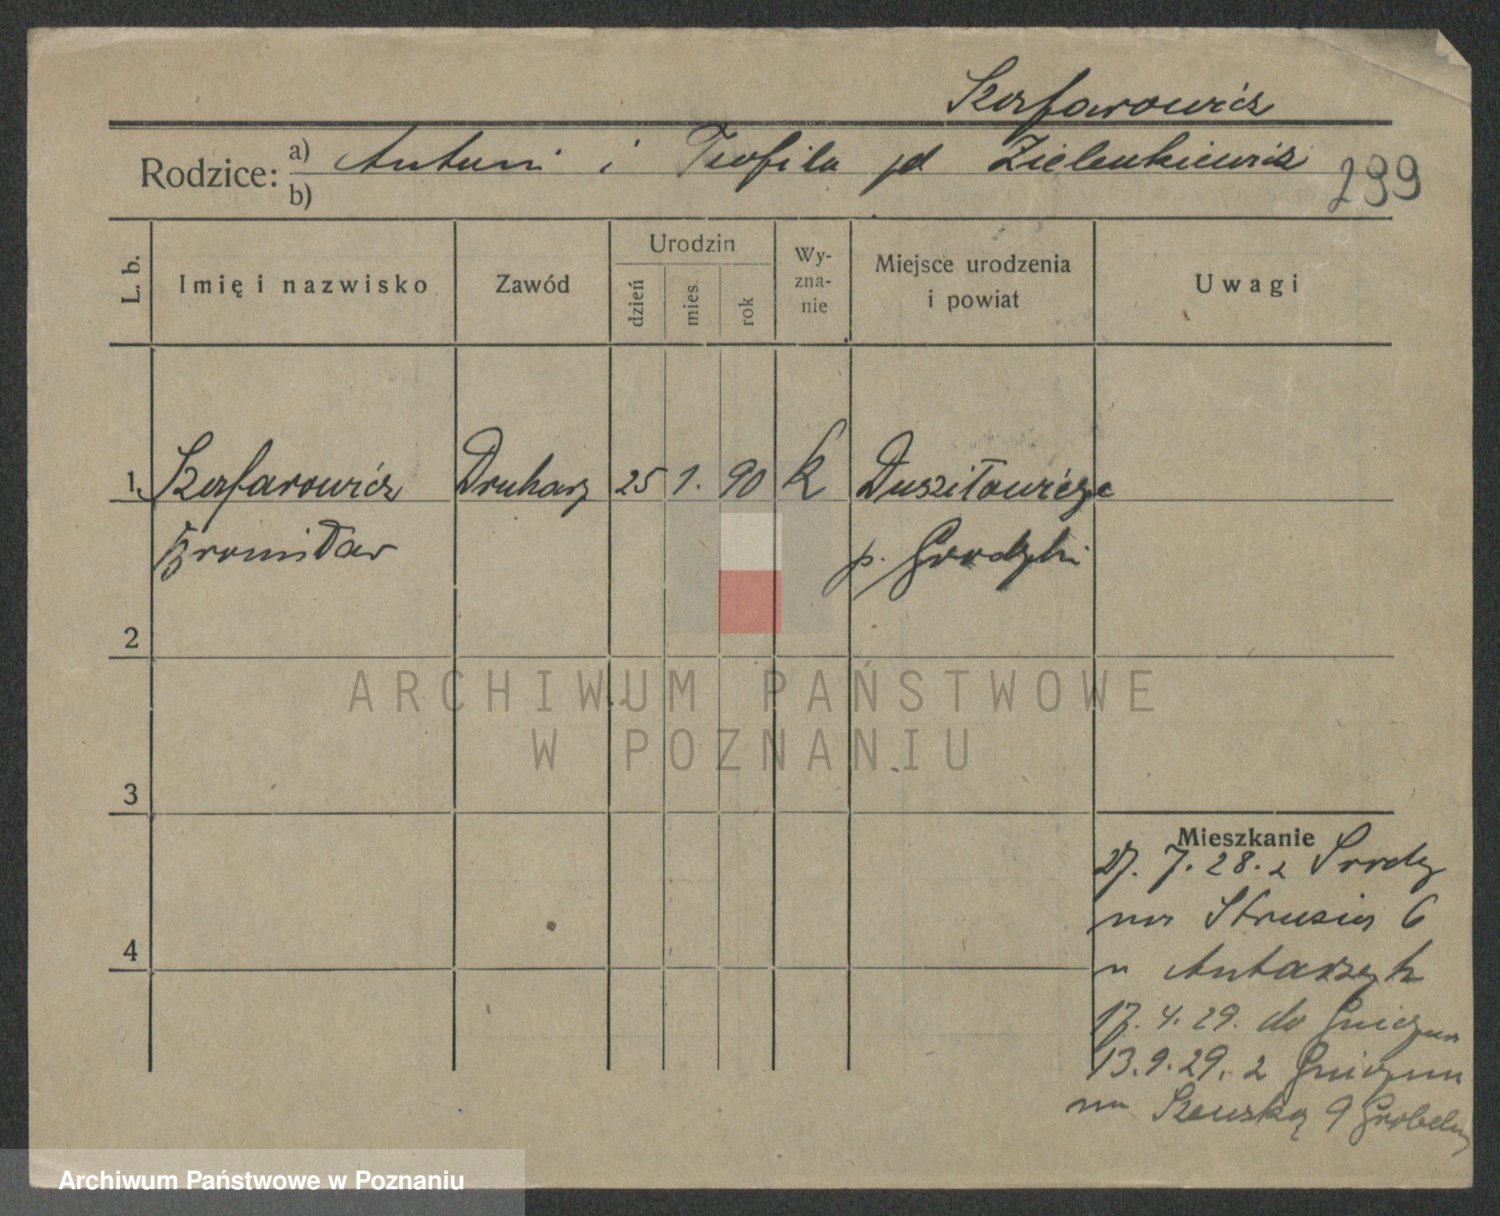 Szafarowicz
Rodzice: a) Antoni i Teofila zd Zielenkiewicz
b)
299
L. b.
Imię i nazwisko
Zawód
Urodzin
dzień
mies.
rok
Wy-
zna-
nie
Miejsce urodzenia
i powiat
Uwagi
1. Szafarowicz Drukarz 25 1. 90 k Duszitowicze
Bronisław p. Grodzki
2
ARCHIWUM PAŃSTWOWE
W POZNANIU
3
Mieszkanie
27. 7. 28. z Środy
na Strusia 6
u
4
17. 4. 29. do Gniezna
13. 9. 29. z Gniezna
na Szewską 9
Archiwum Państwowe w Poznaniu